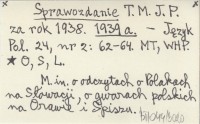 Sprawozdanie T. M. J. P.
za rok 1938. 1939 a. – Język
Pol. 24, nr 2: 62-64. MT, WHP.
* O, S, L.
M. in. o odczytach o Polakach
na Słowacji, o gwarach polskich
na Orawie i Spiszu.